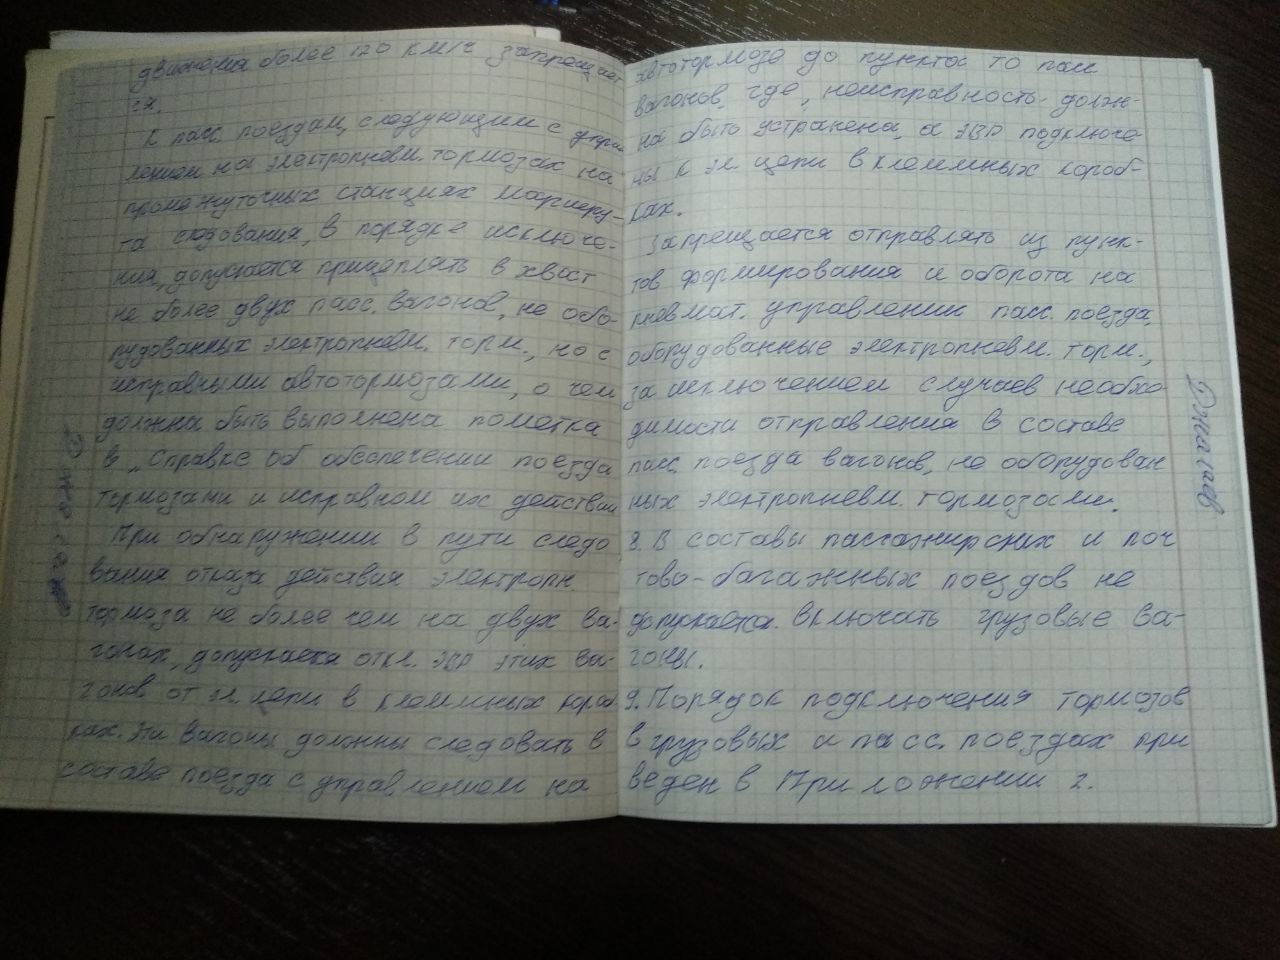 движения более 120 км/ч запрещает
ся.
К пасс. поездам, следующим с управ
лением на электропневм. тормозах на
промежуточных станциях маршру-
та следования, в порядке исключе-
ния, допускается прицеплять в хвост
не более двух пасс. вагонов, не обо-
рудованных электропневм. торм., но с
исправными автотормозами, о чем
должна быть выполнена пометка
в „Справке об обеспечении поезда
тормозами и исправном их действии
При обнаружении в пути следо
вания отказа действия электропн.
тормоза не более чем на двух ва-
гонах, допускается откл. ЭВР этих ва-
гонов от эл. цепи в клеммных короб
ках. Эти вагоны должны следовать в
составе поезда с управлением на
автотормозе до пункта ТО пасс
вагонов, где, неисправность долж-
на быть устранена, а ЭВР подключе
ны к эл. цепи в клеммных короб-
ках.
Запрещается отправлять из пунк-
тов формирования и оборота на
пневмат. управлении пасс. поезда,
оборудованные электропневм. торм.,
за исключением случаев необхо
димости отправления в составе
пасс. поезда вагонов, не оборудован
ных электропневм. тормозами.
8. В составы пассажирских и поч
тово-багажных поездов не
допускается включать грузовые ва-
гоны.
9. Порядок подключения тормозов
в грузовых и пасс. поездах при
веден в Приложении 2.